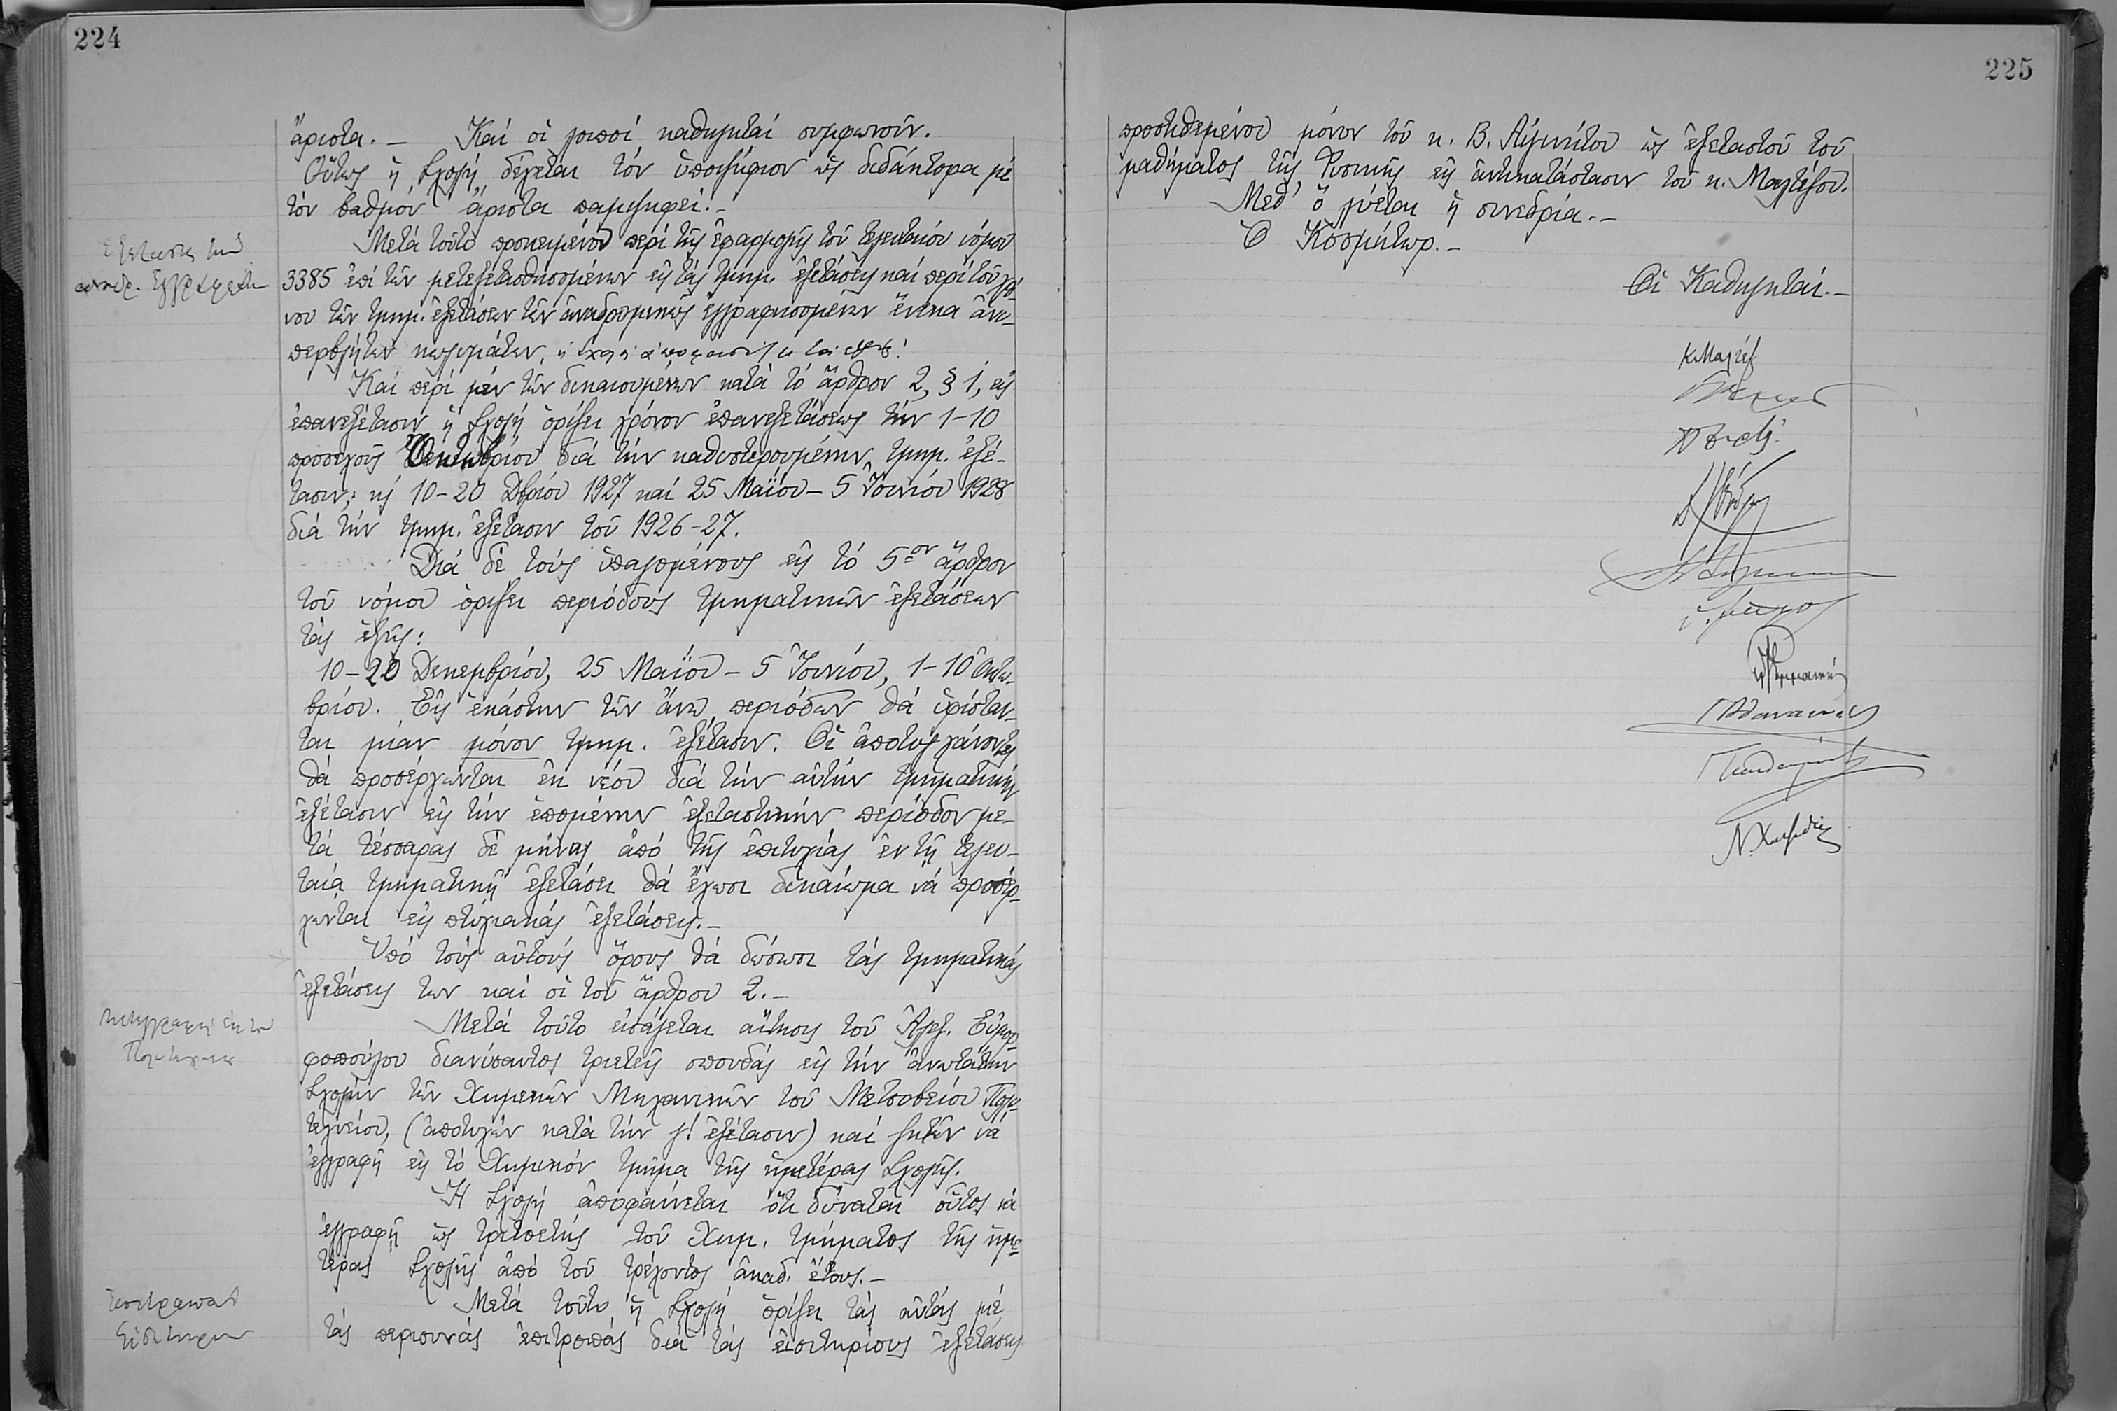 224
ἄριστα. — Καί οἱ λοιποί καθηγηταί συμφωνοῦν.
Οὕτως ἡ Σχολή δέχεται τόν ὑποψήφιον ὡς διδάκτορα μέ
τόν βαθμόν ἄριστα παμψηφεί. —
Μετά τοῦτο προκειμένου περί τῆς ἐφαρμογῆς τοῦ τελευταίου νόμου
3385 ἐπί τῶν μετεξετασθησομένων εἰς τάς τμημ. ἐξετάσεις καί περί τοῦ χρό-
νου τῶν τμημ. ἐξετάσεων τῶν ἀναδρομικῶς ἐγγραφησομένων ἕνεκα ἀνυ-
περβλήτων κωλυμάτων, ἡ Σχολή ἀποφασίζει τά ἑξῆς:
Καί περί μέν τῶν δικαιουμένων κατά τό ἄρθρον 2, § 1, εἰς
ἐπανεξέτασιν ἡ Σχολή ὁρίζει χρόνον ἐπανεξετάσεως τήν 1-10
προσεχοῦς Ὀκτωβρίου διά τήν καθυστερουμένην τμημ. ἐξέ-
τασιν, κς 10-20 Δβρίου 1927 καί 25 Μαΐου - 5 Ἰουνίου 1928
διά τήν τμημ. ἐξέτασιν τοῦ 1926-27.
Διά δέ τούς ὑπαγομένους εἰς τό 5ον ἄρθρον
τοῦ νόμου ὁρίζει περιόδους τμηματικῶν ἐξετάσεων
τάς ἑξῆς:
10-20 Δεκεμβρίου, 25 Μαΐου - 5 Ἰουνίου, 1-10 Ὀκτω-
βρίου. Εἰς ἑκάστην τῶν ἄνω περιόδων θά ὑφίσταν-
ται μίαν μόνον τμημ. ἐξέτασιν. Οἱ ἀποτυγχάνοντες
θά προσέρχωνται ἐκ νέου διά τήν αὐτήν τμηματικήν
ἐξέτασιν εἰς τήν ἑπομένην ἐξεταστικήν περίοδον με-
τά τέσσαρας δέ μῆνας ἀπό τῆς ἐπιτυχίας ἐν τῇ τελευ-
ταίᾳ τμηματικῇ ἐξετάσει θά ἔχωσι δικαίωμα νά προσέρ-
χωνται εἰς πτυχιακάς ἐξετάσεις. —
Ὑπό τούς αὐτούς ὅρους θά δώσωσι τάς τμηματικάς
ἐξετάσεις των καί οἱ τοῦ ἄρθρου 2. —
Μετά τοῦτο εἰσάγεται αἴτησις τοῦ Ἀλεξ. Εὐμορ-
φοπούλου διανύσαντος τριετεῖς σπουδάς εἰς τήν ἀνωτάτην
Σχολήν τῶν Χημικῶν Μηχανικῶν τοῦ Μετσοβείου Πολυ-
τεχνείου, (ἀποτυχών κατά τήν γ! ἐξέτασιν) καί ζητῶν νά
ἐγγραφῇ εἰς τό Χημικόν τμῆμα τῆς ἡμετέρας Σχολῆς.
Ἡ Σχολή ἀποφαίνεται ὅτι δύναται οὗτος νά
ἐγγραφῇ ὡς τριτοετής τοῦ Χημ. τμήματος τῆς ἡμε-
τέρας Σχολῆς ἀπό τοῦ τρέχοντος ἀκαδ. ἔτους. —
Μετά τοῦτο ἡ Σχολή ὁρίζει τάς αὐτάς μέ
τάς περισυνάς ἐπιτροπάς διά τάς εἰσιτηρίους ἐξετάσεις
225
προστιθεμένου μόνον τοῦ κ. Β. Αἰγινήτου ὡς ἐξεταστοῦ τοῦ
μαθήματος τῆς Φυσικῆς εἰς ἀντικατάστασιν τοῦ κ. Μαλτέζου.
Μεθ' ὅ λύεται ἡ συνεδρία. —
Ὁ Κοσμήτωρ. —
Οἱ Καθηγηταί. —